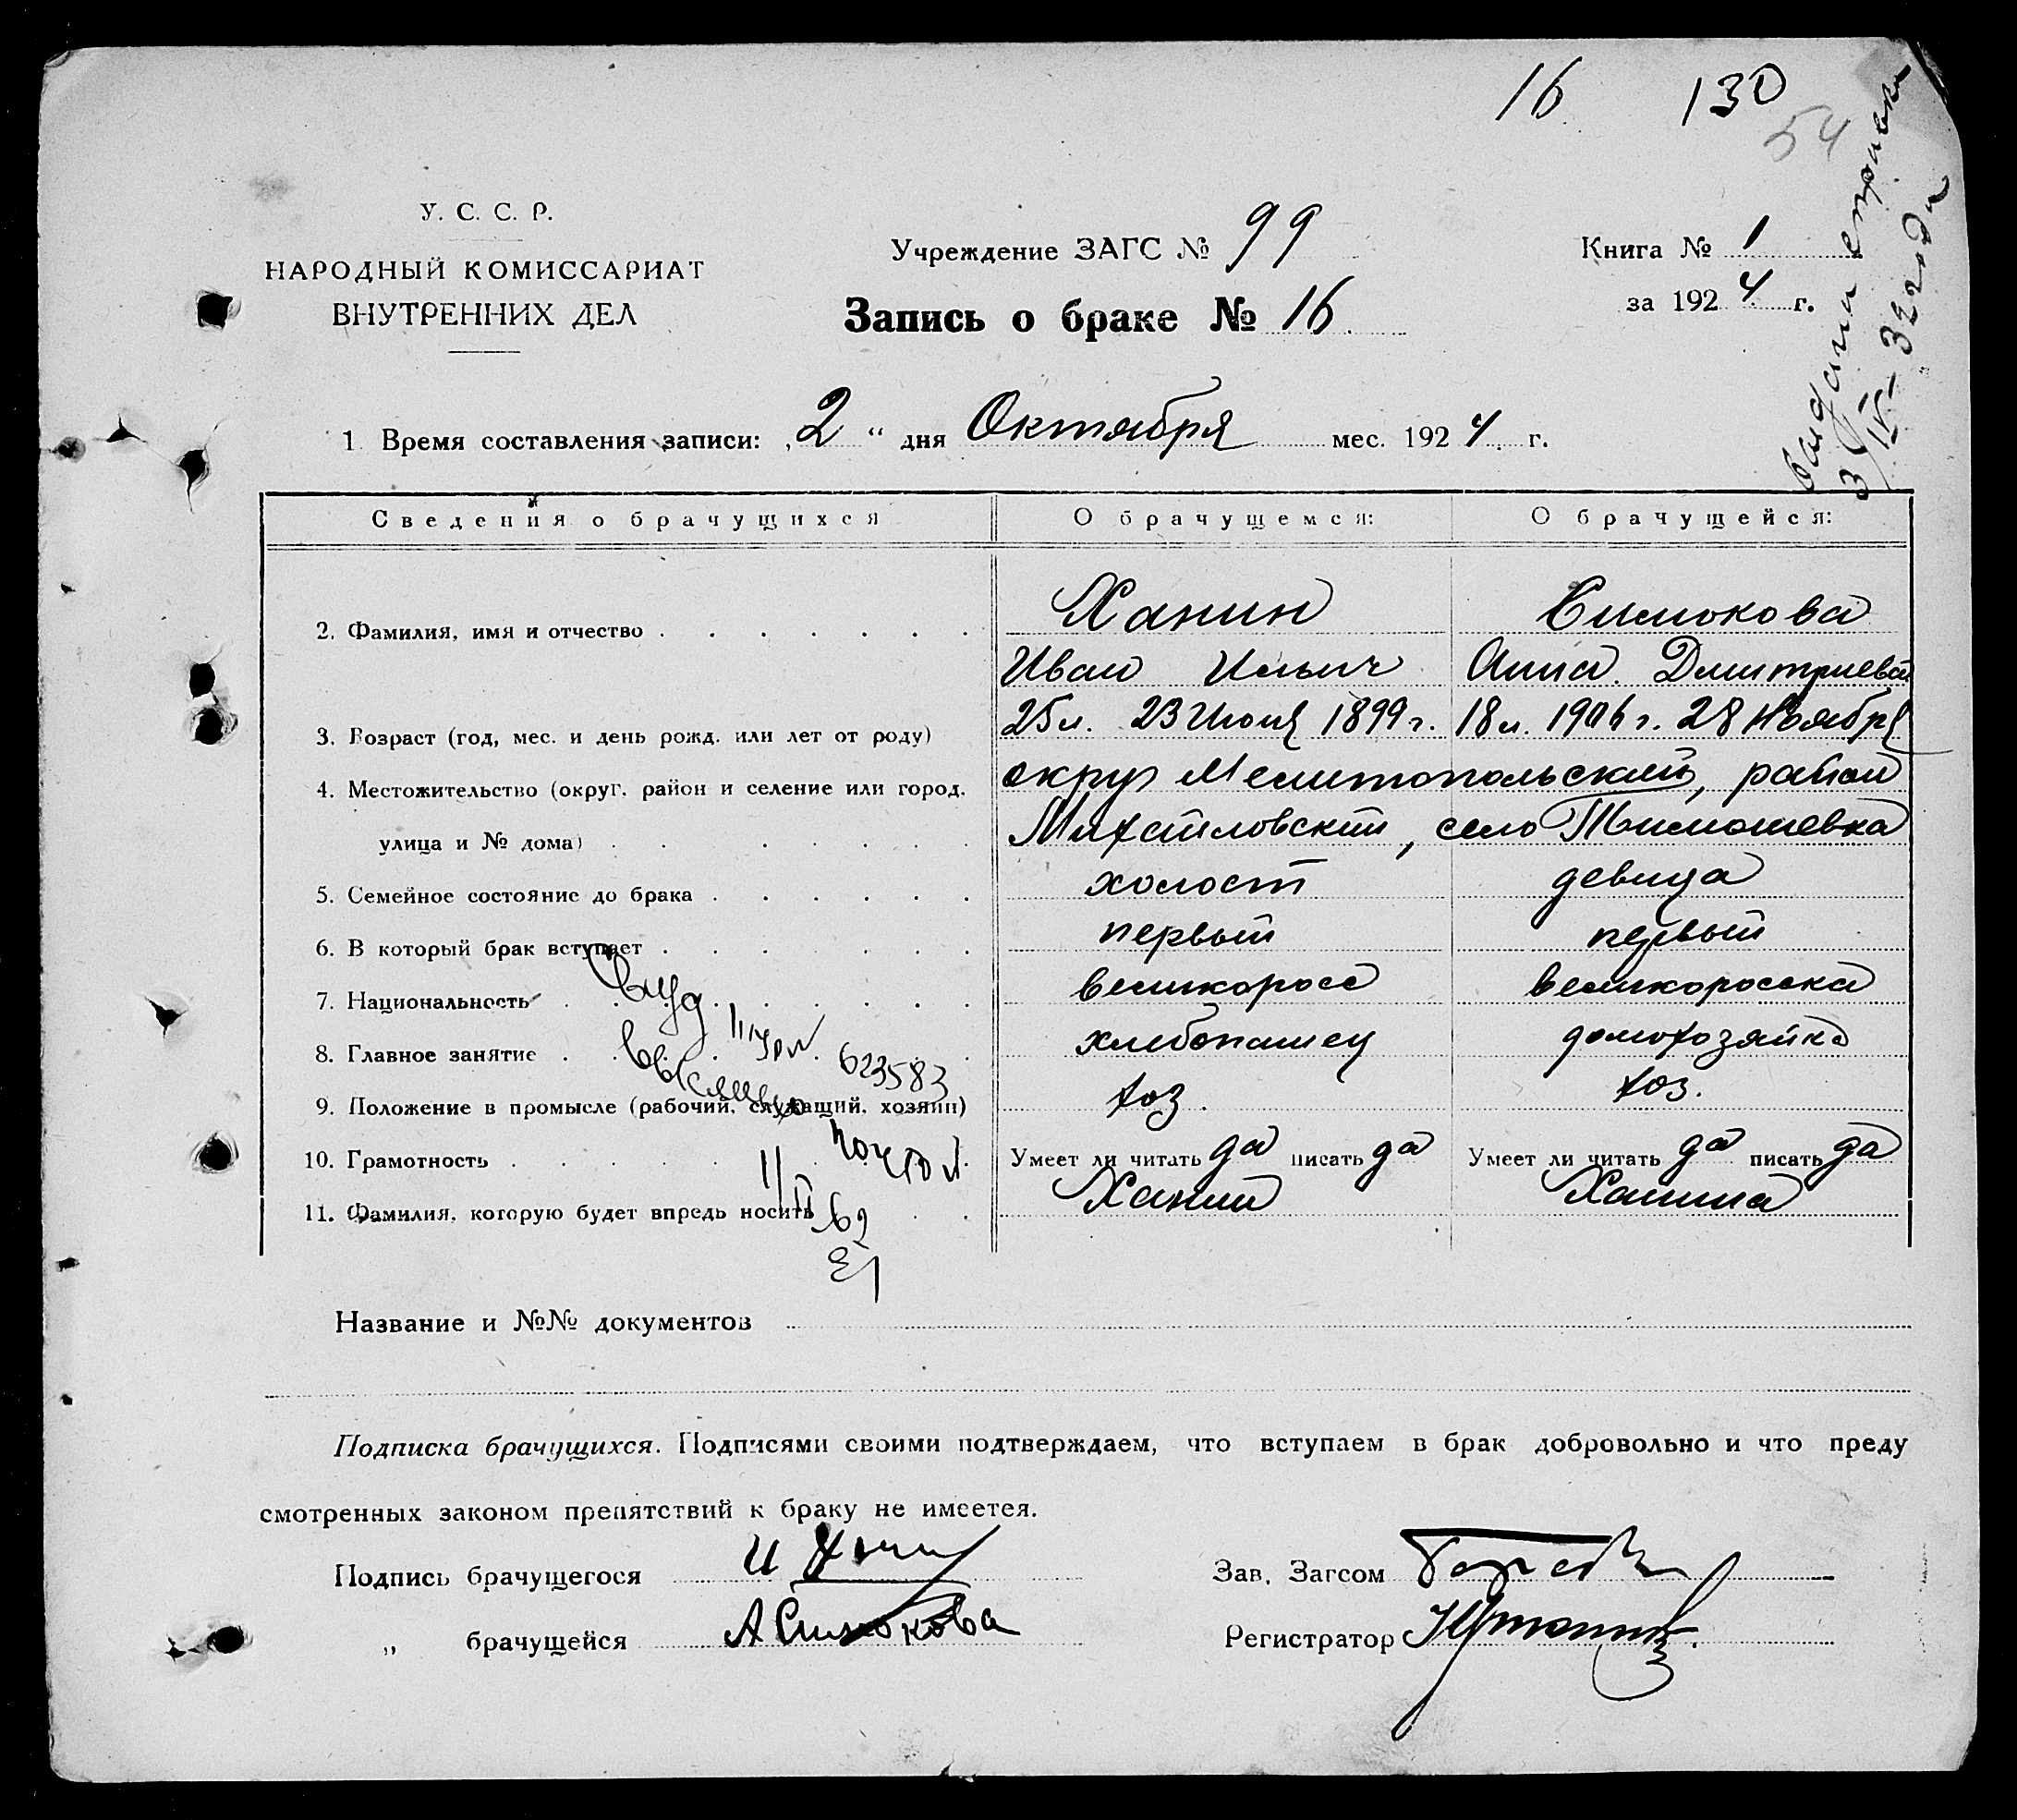 16 130
54
выдана справка
3/IV-32 года
У. С. С. Р.
НАРОДНЫЙ КОМИССАРИАТ
ВНУТРЕННИХ ДЕЛ
Учреждение ЗАГС № 99
Запись о браке № 16
Книга № 1
за 1924 г.
1 Время составления записи: „2“ дня Октября мес. 1924 г.
Сведения о брачущихся О брачущемся: О брачущейся:
2. Фамилия, имя и отчество Ханин Симокова
Иван Ильич Анна Дмитриевна
3. Возраст (год, мес. и день рожд. или лет от роду) 25 л. 23 Июня 1899 г. 18 л. 1906 г. 28 Ноября
4. Местожительство (округ. район и селение или город. округ Мелитопольский, район
улица и № дома) Михайловский, село Тимошевка
5. Семейное состояние до брака холост девица
6. В который брак вступает первый первый
7. Национальность великоросс великоросска
8. Главное занятие хлебопашец домохозяйка
623583
9. Положение в промысле (рабочий, служащий, хозяин) хоз. хоз.
10. Грамотность Умеет ли читать да писать да Умеет ли читать да писать да
11. Фамилия, которую будет впредь носить Ханин Ханина
62
Название и №№ документов
Подписка брачущихся. Подписями своими подтверждаем, что вступаем в брак добровольно и что преду
смотренных законом препятствий к браку не имеется.
Подпись брачущегося И Ханин Зав. Загсом
„ брачущейся А Симокова Регистратор